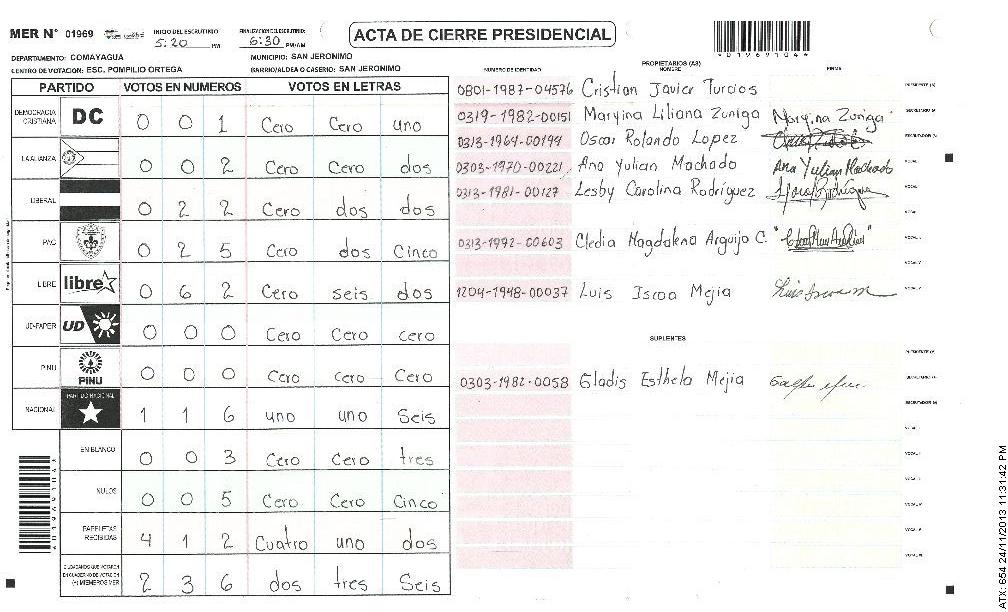 MER N° 01969 INICIO DEL ESCRUTINIO 5:20 PM FINALIZACION DEL ESCRUTINIO 6:30 PM/AM ACTA DE CIERRE PRESIDENCIAL
DEPARTAMENTO: COMAYAGUA MUNICIPIO: SAN JERONIMO
CENTRO DE VOTACION: ESC. POMPILIO ORTEGA BARRIO/ALDEA O CASERIO: SAN JERONIMO
PARTIDO VOTOS EN NUMEROS VOTOS EN LETRAS
DEMOCRACIA CRISTIANA DC 0 0 1 Cero Cero uno
LA ALIANZA 0 0 2 Cero Cero dos
LIBERAL 0 2 2 Cero dos dos
PAC 0 2 5 Cero dos Cinco
LIBRE libre 0 6 2 Cero seis dos
UD-FAPER UD 0 0 0 Cero Cero cero
PINU PINU 0 0 0 Cero Cero Cero
NACIONAL PARTIDO NACIONAL 1 1 6 uno uno Seis
EN BLANCO 0 0 3 Cero Cero tres
NULOS 0 0 5 Cero Cero Cinco
PAPELETAS RECIBIDAS 4 1 2 Cuatro uno dos
CIUDADANOS QUE VOTARON EN CUADERNO DE VOTACION (+) MIEMBROS MER 2 3 6 dos tres Seis
PROPIETARIOS (AS)
NUMERO DE IDENTIDAD NOMBRE FIRMA
0801-1987-04576 Cristian Javier Turcios PRESIDENTE (A)
0319-1982-00151 Maryina Liliana Zuniga Maryina Zuniga SECRETARIO (A)
0313-1964-00194 Oscar Rolando Lopez ESCRUTADOR (A)
0303-1970-00221 Ana Yulian Machado Ana Yulian Machado VOCAL I
0313-1981-00127 Lesby Carolina Rodríguez
0313-1992-00603 Cledia Magdalena Arguijo C.
1204-1948-00037 Luis Iscoa Mejia
SUPLENTES
PRESIDENTE (A)
0303-1982-0058 Gladis Esthela Mejia SECRETARIO (A)
ESCRUTADOR (A)
4019691044
ATX: 654 24/11/2013 11:31:42 PM